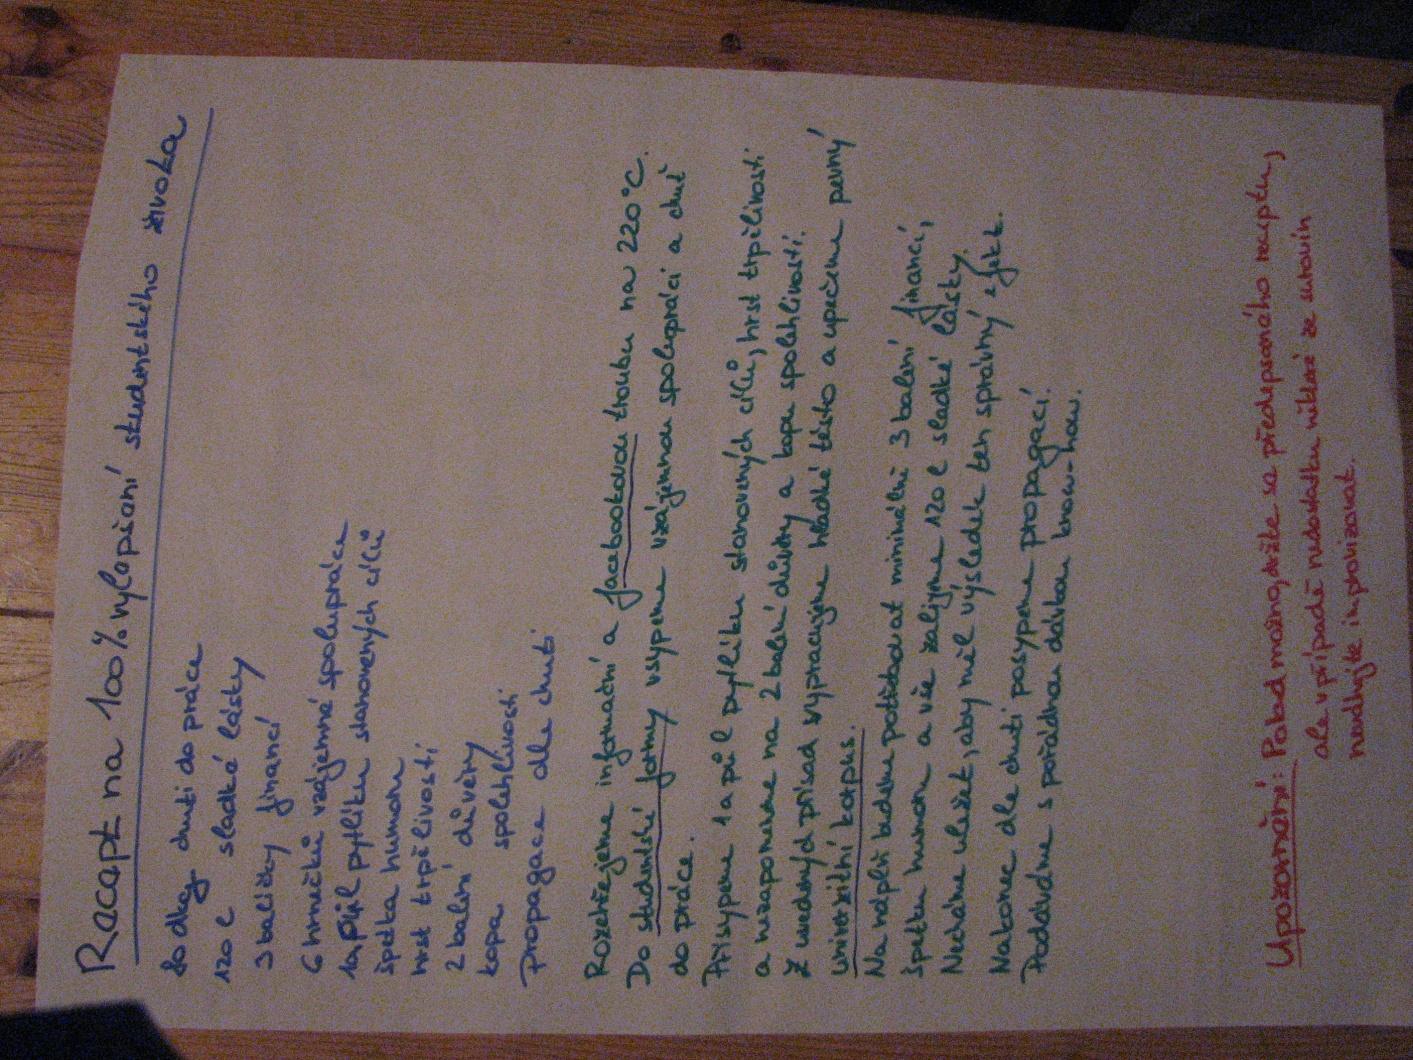 Racapt na 100% vylepšení studentského života
80 dkg chuti do práce
120 l sladké lásky
3 balíčky financí
6 hrnečků vzájemné spolupráce
1a půl pytlíku stanovených cílů
špetka humoru
hrst trpělivosti
2 balení důvěry
kopa spolehlivosti
Propagace dle chuti
Rozehřejeme informační a facebookovou troubu na 220°C.
Do studentské formy vsypeme vzájemnou spolupráci a chuť
do práce.
Přisypeme 1 a půl pytlíku stanovených cílů, hrst trpělivosti
a nezapomeneme na 2 balení důvěry a kopu spolehlivosti.
Z uvedených přísad vypracujeme hladké těsto a upečeme pevný
univerzitní korpus.
Na náplň budeme potřebovat minimálně 3 balení financí,
špetku humoru a vše zalijeme 120 l sladké lásky.
Necháme uležet, aby měl výsledek ten správný efekt.
Nakonec dle chuti posypeme propagací.
Podáváme s pořádnou dávkou know-how.
Upozornění: Pokud možno, držte se předepsaného receptu,
ale v případě nedostatku některé ze surovin
neváhejte improvizovat.